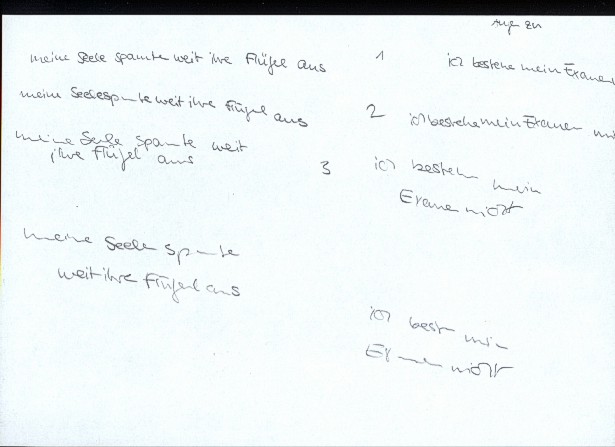 Auge zu
meine Seele spannte weit ihre Flügel aus
1
ich bestehe mein Examen
meine Seele spannte weit ihre Flügel aus
2
ich bestehe mein Examen
meine Seele spannte weit
ihre Flügel aus
3
ich bestehe mein
Examen nicht
meine Seele spannte
weit ihre Flügel aus
ich best mein
Examen nicht